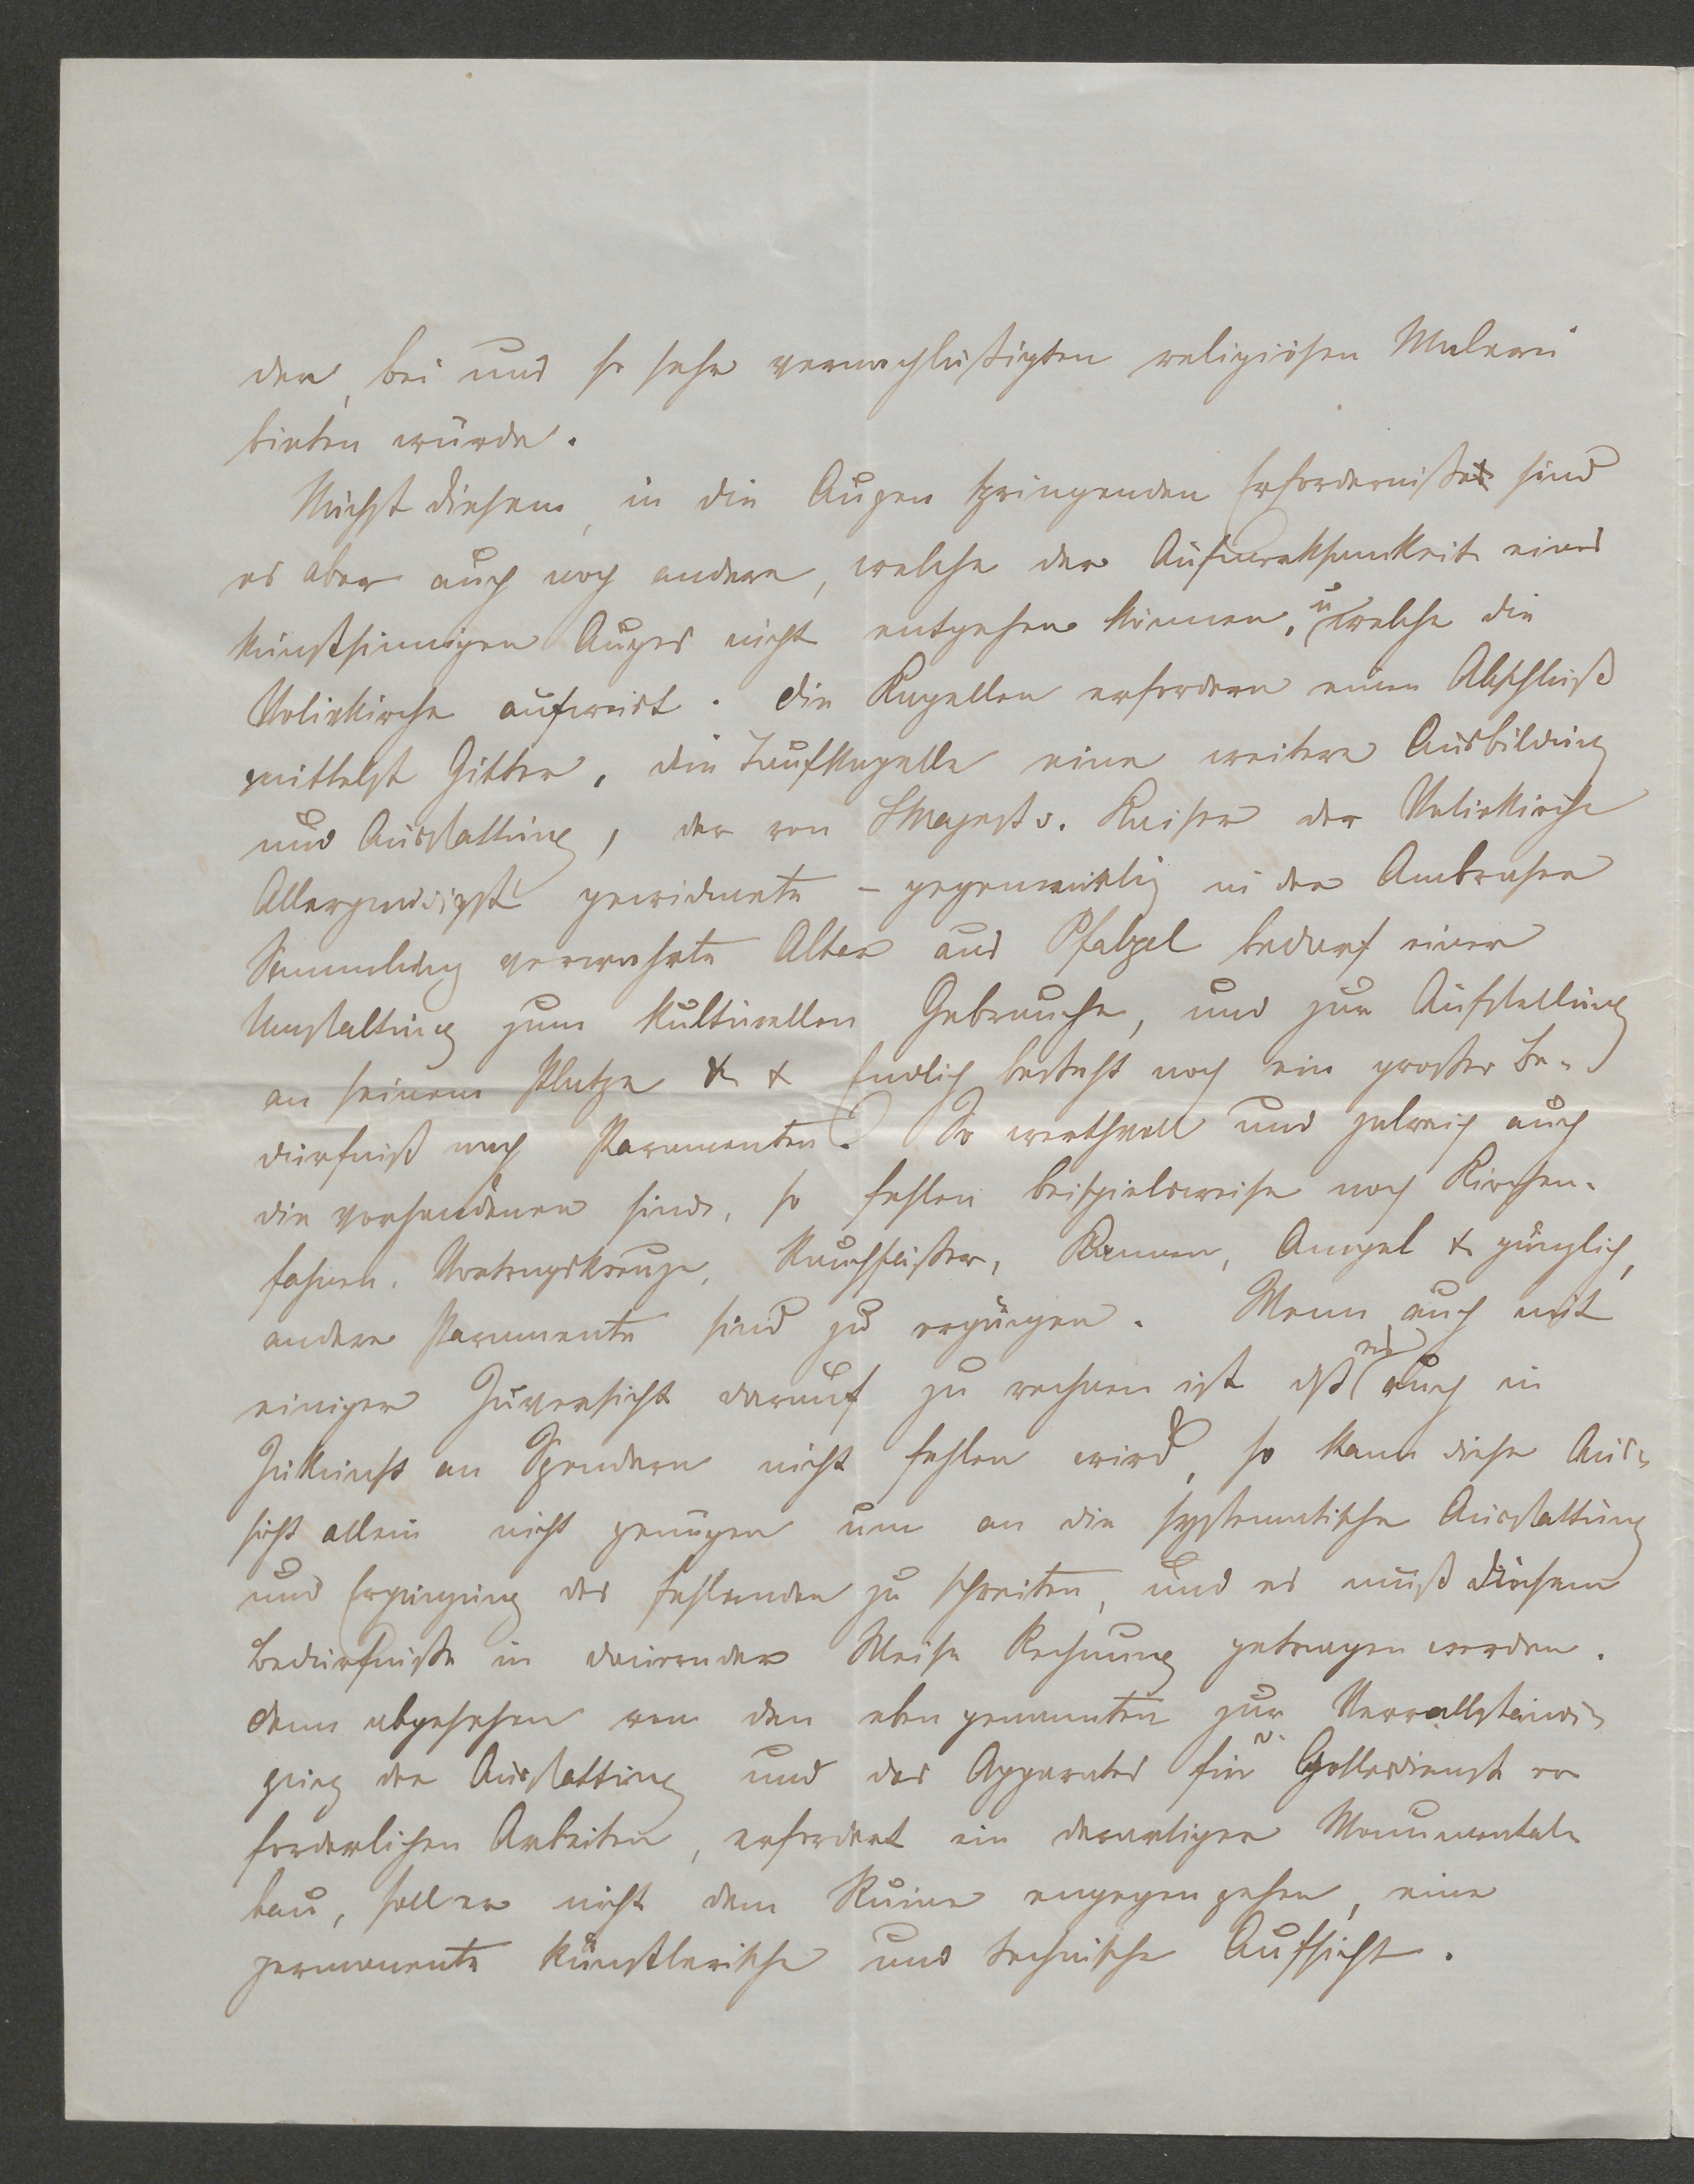 der, bei uns so sehr vernachlässigten religiösen Malerei
bieten würde.
Nächst diesem, in die Augen springenden Erforderniße sind
es aber auch noch andere, welche der Aufmerksamkeit eines
kunstsinnigen Auges nicht entgehen können, u welche die
Votivkirche aufweist. Die Kapellen erfordern einen Abschluß
mittelst Gitter, die Taufkapelle eine weitere Ausbildung
und Ausstattung, der von SMajest d. Kaiser der Votivkirche
Allergnädigst gewidmete – gegenwärtig in der Ambraser
Sammlung verwahrte Altar aus Pfalzel bedarf einer
Umstaltung zum kulturellen Gebrauche, und zur Aufstellung
an seinem Platze & & Endlich besteht noch ein großer Be-
dürfniß nach Paramenten. So werthvoll und zalreich auch
die vorhandenen sind, so fehlen beispielsweise noch Kirchen-
fahnen, Vortragskreuze, Rauchfäßer, Kannen, Ampel & gänzlich,
andere Paramente sind zu ergänzen. Wenn auch mit
einiger Zuversicht darauf zu rechnen ist dß es auch in
Zukunft an Spendern nicht fehlen wird, so kann diese Aus-
sicht allein nicht genügen um an die systematische Ausstattung
und Ergänzung des fehlenden zu schreiten, und es muß diesem
Bedürfniße in dauernder Weise Rechnung getragen werden.
Denn abgesehen von den eben genannten zur Vervollständi-
gung der Ausstattung und des Apparates für d. Gottesdienst er
forderlichen Arbeiten, erfordert ein derartiger Monumental-
bau, soll er nicht dem Ruine engegen gehen, eine
permanente künstlerische und technische Aufsicht.